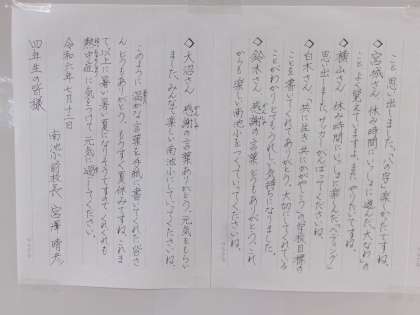 こと思い出しました。八の字楽しかったですね。
◇宮城さん 休み時間にいっしょに遊んだ大なわの
ことよく覚えていますよ。またやりたいですね。
◇横山さん 休み時間にいっしょに楽しんだヘディング
思い出しました。サッカーがんばってくださいね。
◇白木さん 共に生き共にかがやこうの学校目標の
ことを書いてくれてありがとう。大切にしてくれている
ことがわかりとてもうれしい気持ちになりました。
◇鈴木さん 感謝の言葉どうもありがとう。これ
からも楽しい南池小をつくっていってくださいね。
◇大沼さん 感謝の言葉ありがとう。元気をもらい
ました。みんなで楽しい南池小にしてくださいね。
このように温かな言葉を手紙に書いてくれた皆さ
ん、どうもありがとう。もうすぐ夏休みですね。これま
で以上に暑い暑い夏になりそうですのでくれぐれも
熱中症に気をつけて元気に過ごしてくださいね。
令和六年七月十二日
南池小前校長 宮澤晴彦
四年生の皆様